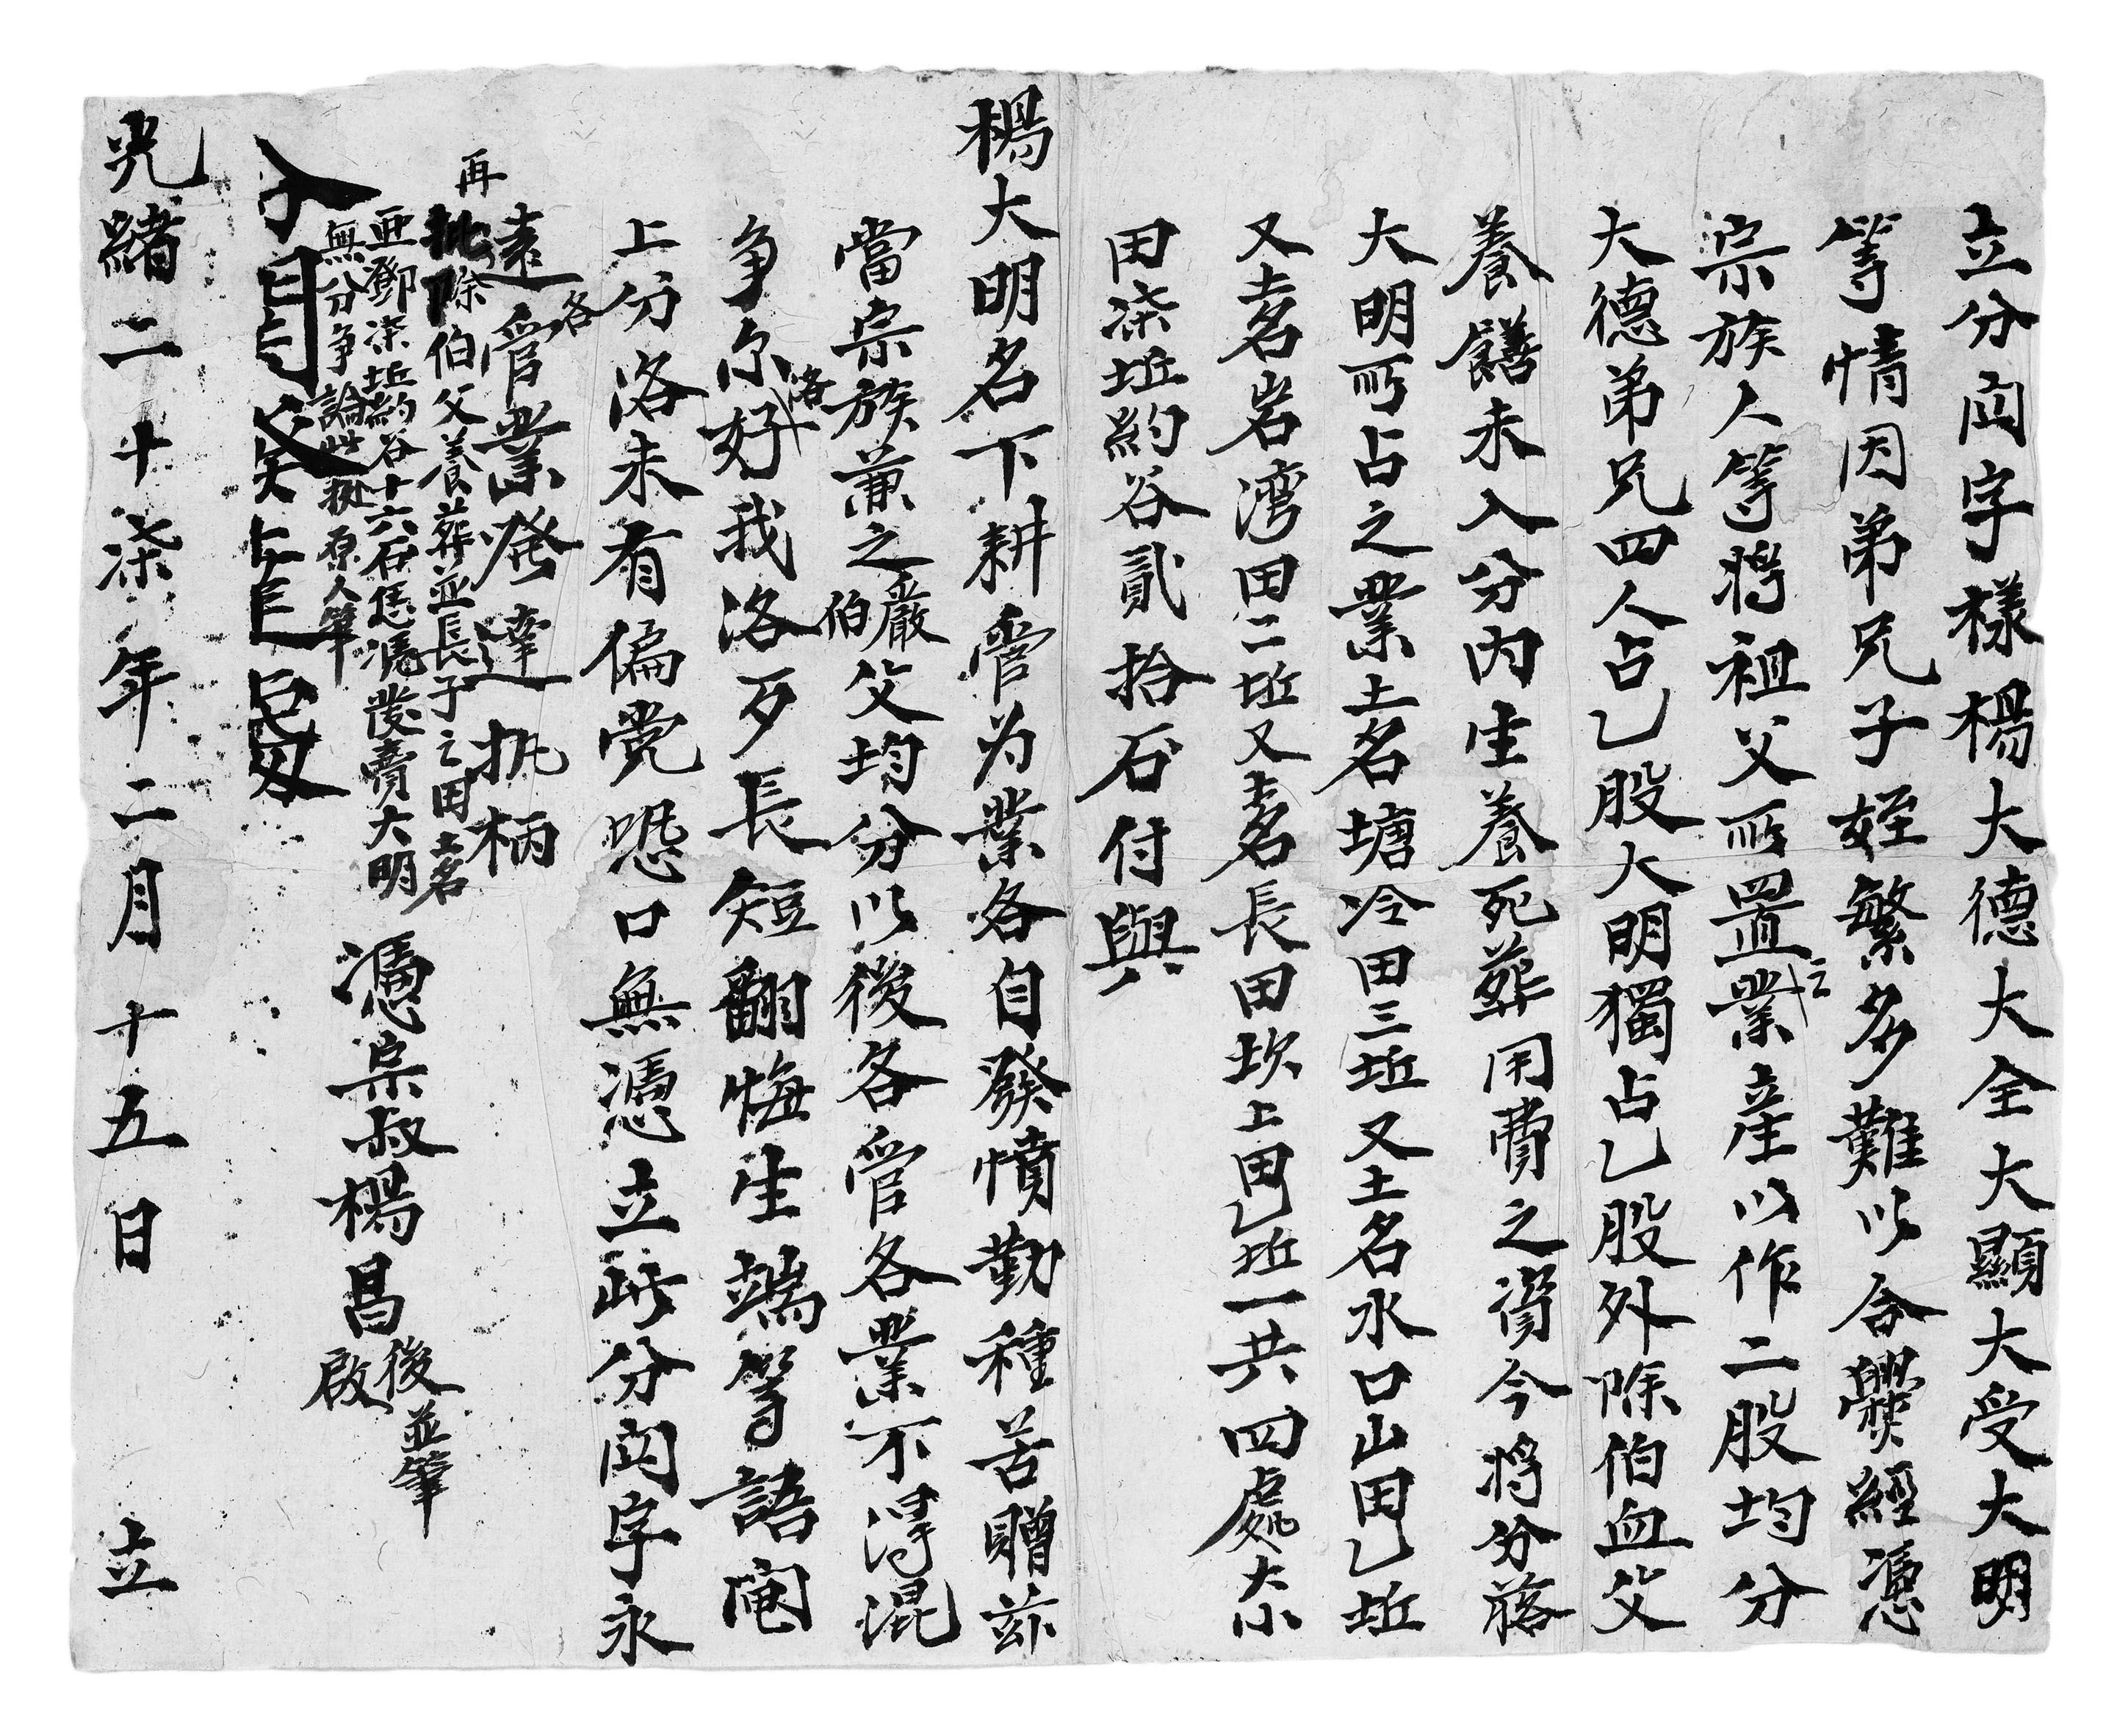 立分関字樣楊大德大全大顯大受大明
等情因弟兄子姪繁多難以合爨經憑
宗族人等將祖父所置之業產以作二股均分
大德弟兄四人占乙股大明獨占乙股外除伯血父
養饍未入分内生養死葬用費之資今將分落
大明所占之業土名塘冷田三坵又土名水口山田乙坵
又土名岩湾田二坵又土名長田坎上田乙坵一共四處大小
田柒坵約谷貳拾石付與
楊大明名下耕管为業各自發憤勤種苦贈茲
當宗族兼之嚴伯父均分以後各管各業不得混
争尔好洛我洛歹長短翻悔生端等語闹
上分洛未有偏党恐口無憑立此分関字永
遠各管業發達执柄
再批除伯父養葬並長子之田土名
亚鄧柒坵約谷十六石恁憑發賣大明
無分争論此批原人筆
憑宗叔楊昌後啟並筆
光緒二十柒年二月十五日 立